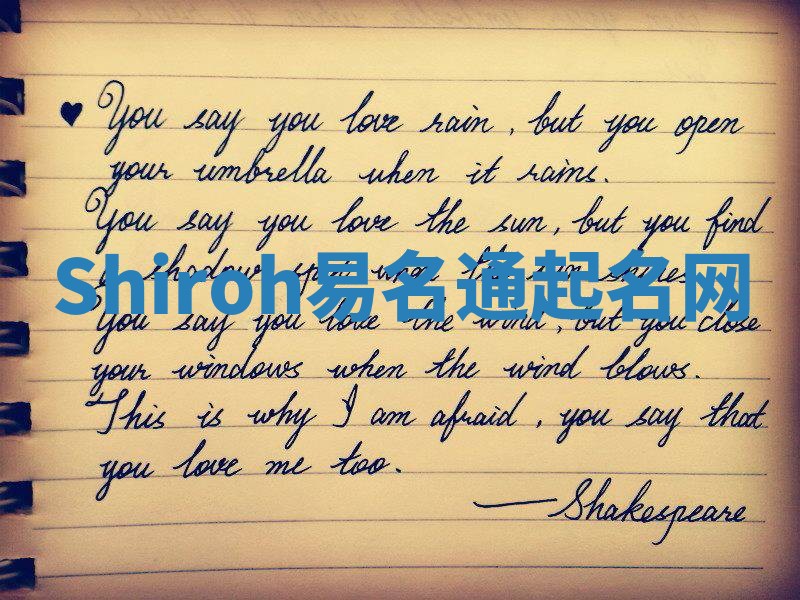 ♥ You say you love rain, but you open
your umbrella when it rains.
You say you love the sun, but you find
a shadow spot when the sun shines.
Shiroh易名通起名网
You say you love the wind, but you close
your windows when the wind blows.
This is why I am afraid, you say that
you love me too.
—Shakespeare